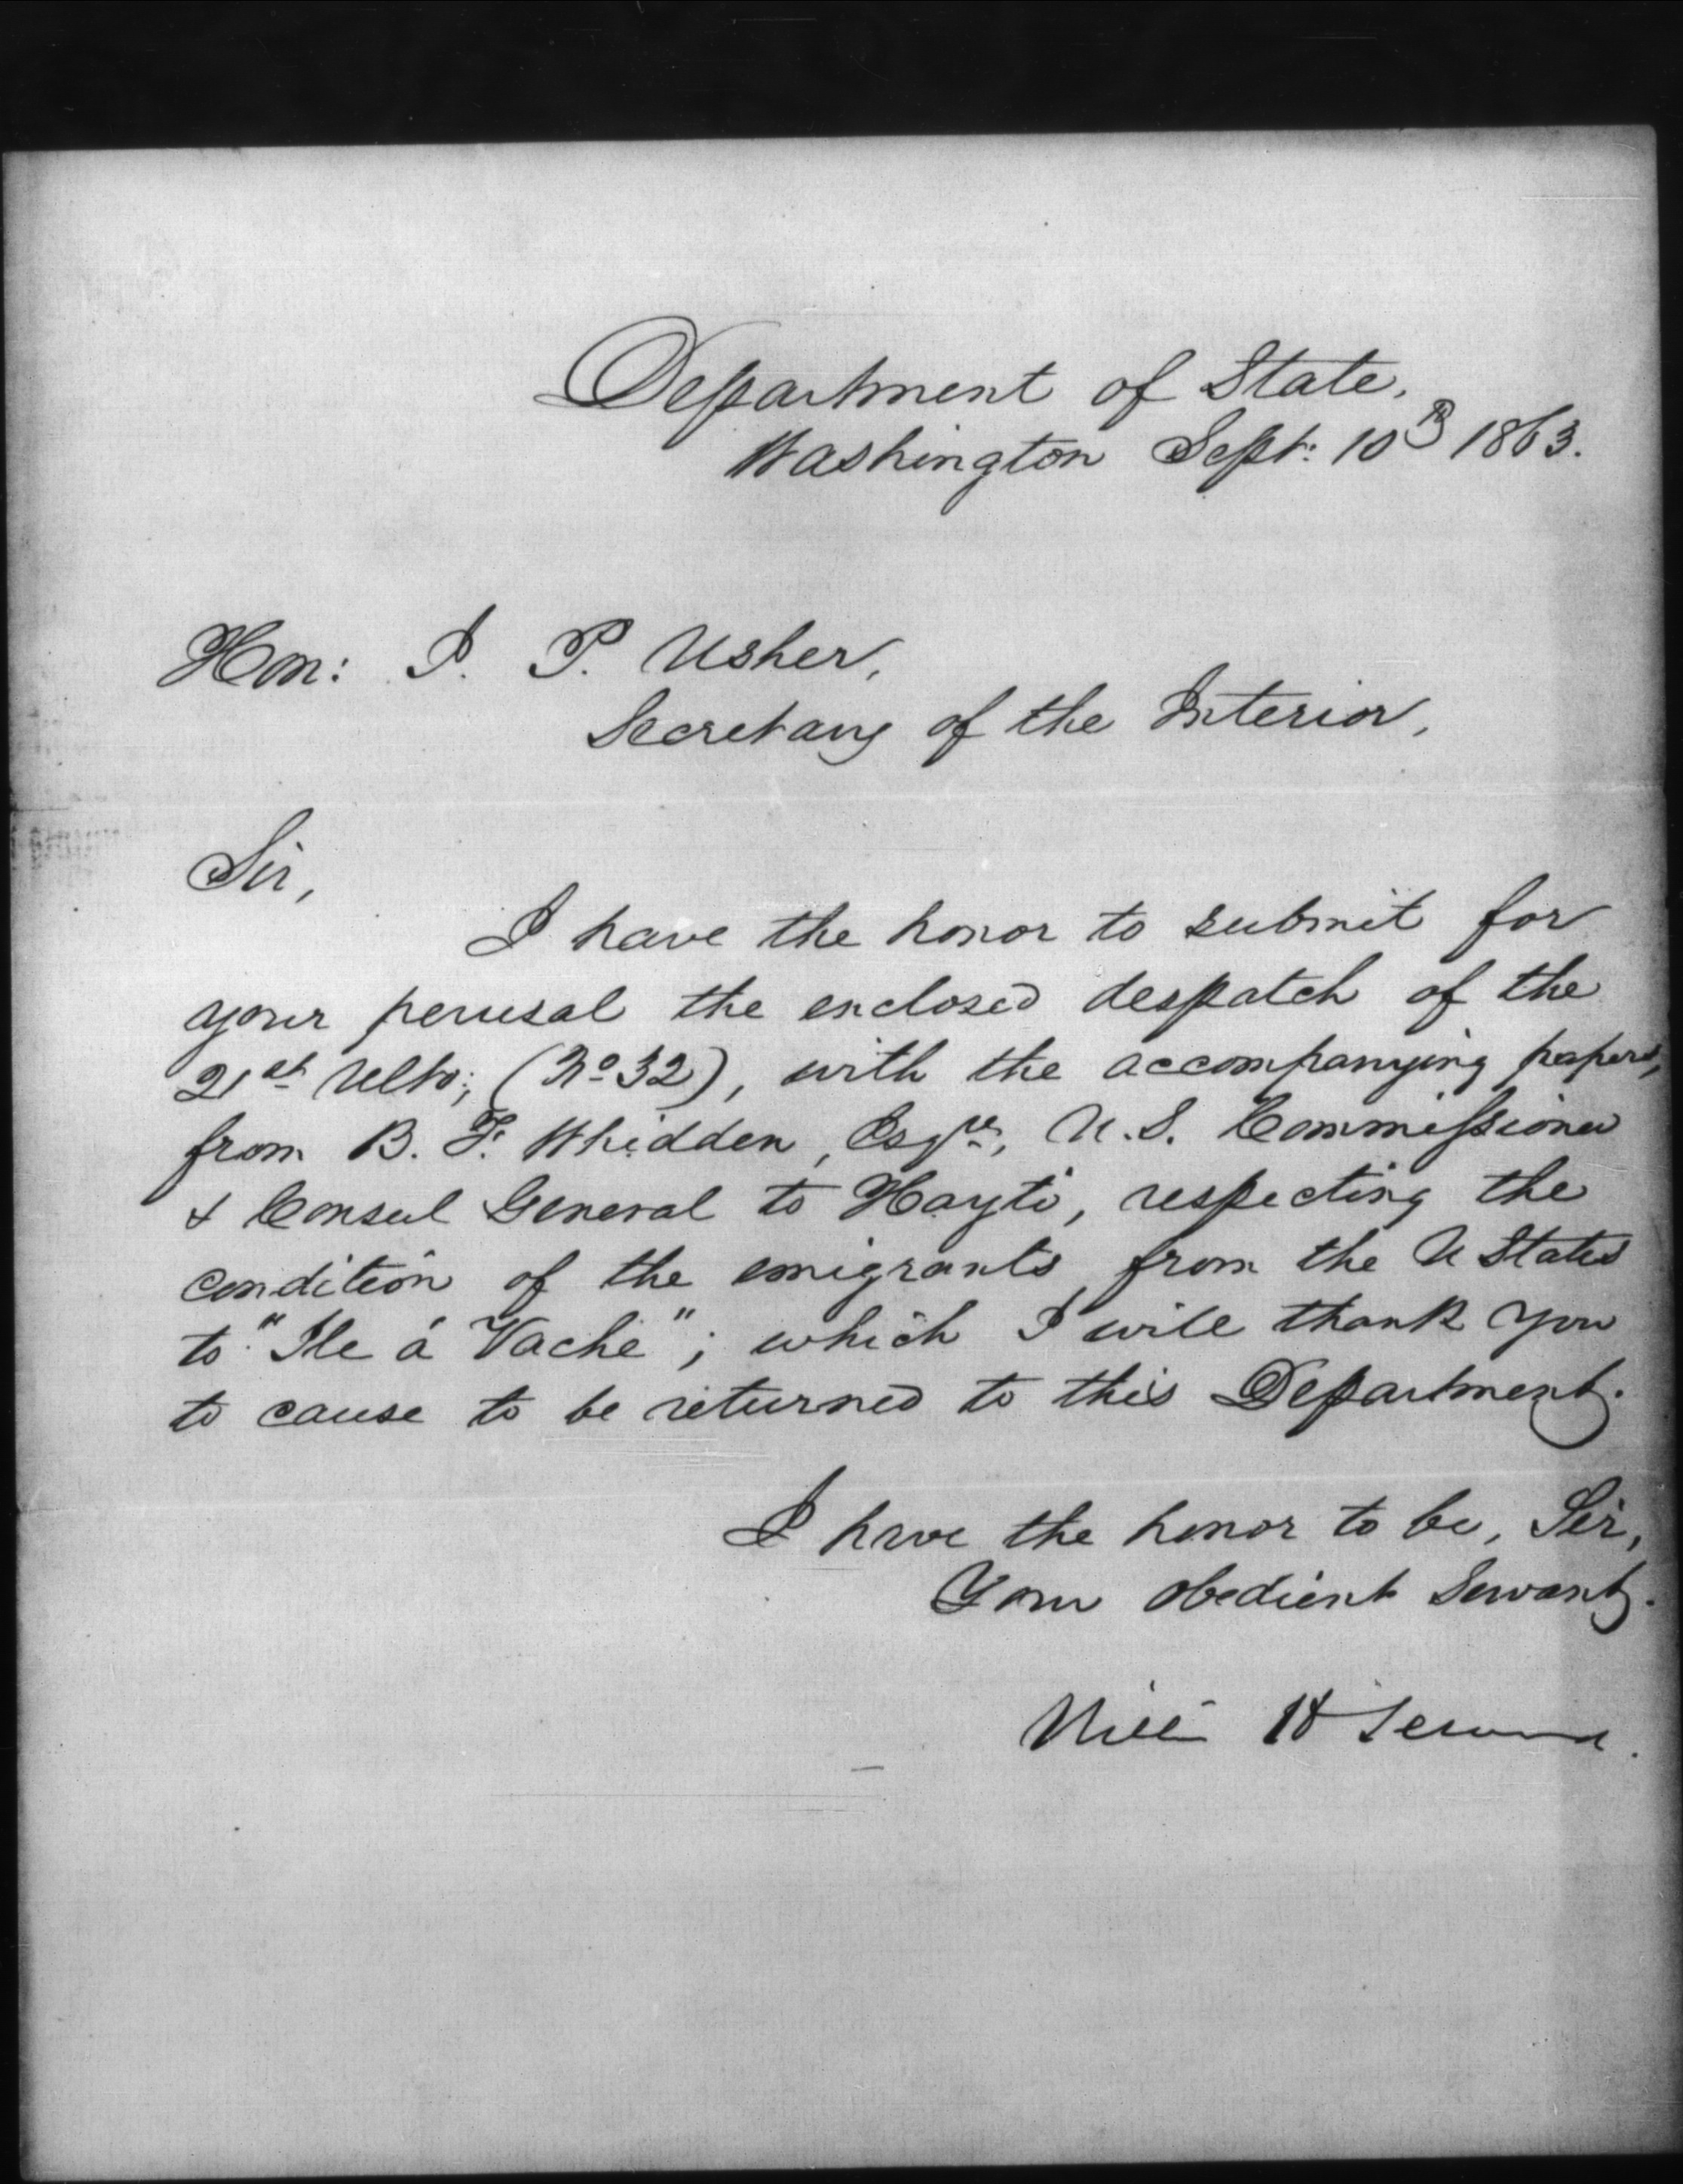 Department of State.
Washington Sept: 10th 1863.
Hon: J. P. Usher,
Secretary of the Interior,
Sir,
I have the honor to submit for
your perusal the enclosed despatch of the
21st Ulto; (No 32), with the accompanying papers,
from B. F. Whidden, Esqre, U.S. Commissioner
& Consul General to Hayti, respecting the
condition of the emigrants from the U States
to "Ile á Vache"; which I will thank you
to cause to be returned to this Department.
I have the honor to be, Sir,
Your obedient Servant.
Willm H Seward.